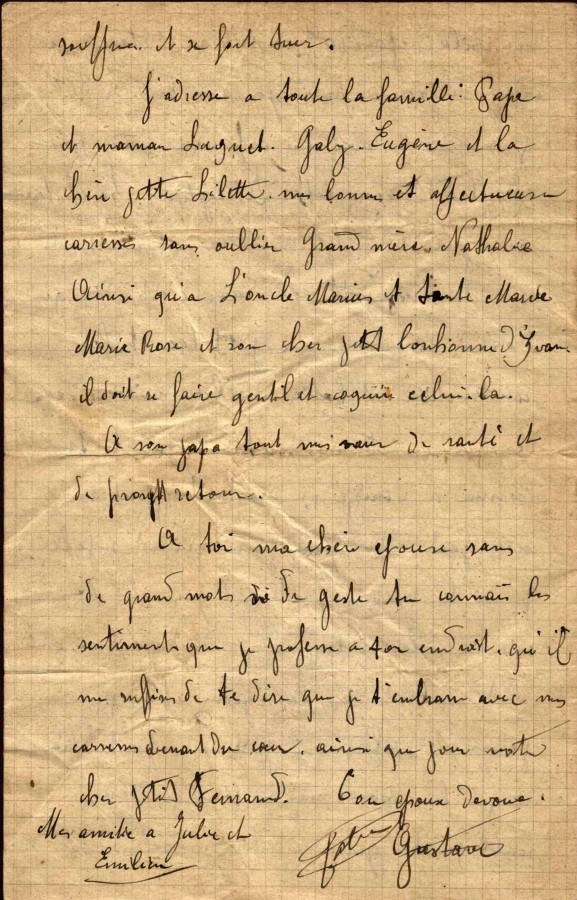 souffrir et se fait tuer.
J'adresse a toute la famille: Papa
et maman Laguet. Gaby. Eugène et la
chère petite Lilette. mes bonnes et affectueuses
carresses sans oublier Grand mère. Nathalie
Ainsi qu'a L'oncle Marius et tante Marie
Marie Rose et son cher petit bonhomme d'Yvan
il doit se faire gentil et coquin celui-la.
A son papa tout mes vœux de santé et
de prompt retour.
A toi ma chère epouse sans
de grand mots ni de geste tu connais les
sentiments que je professe a ton endroit. qu'il
me suffise de te dire que je t'embrasse avec mes
carresses du cœur. ainsi que pour notre
cher petit Fernand. Ton epoux devoué.
Mes amitiés a Jules et
Emilien
Gustave